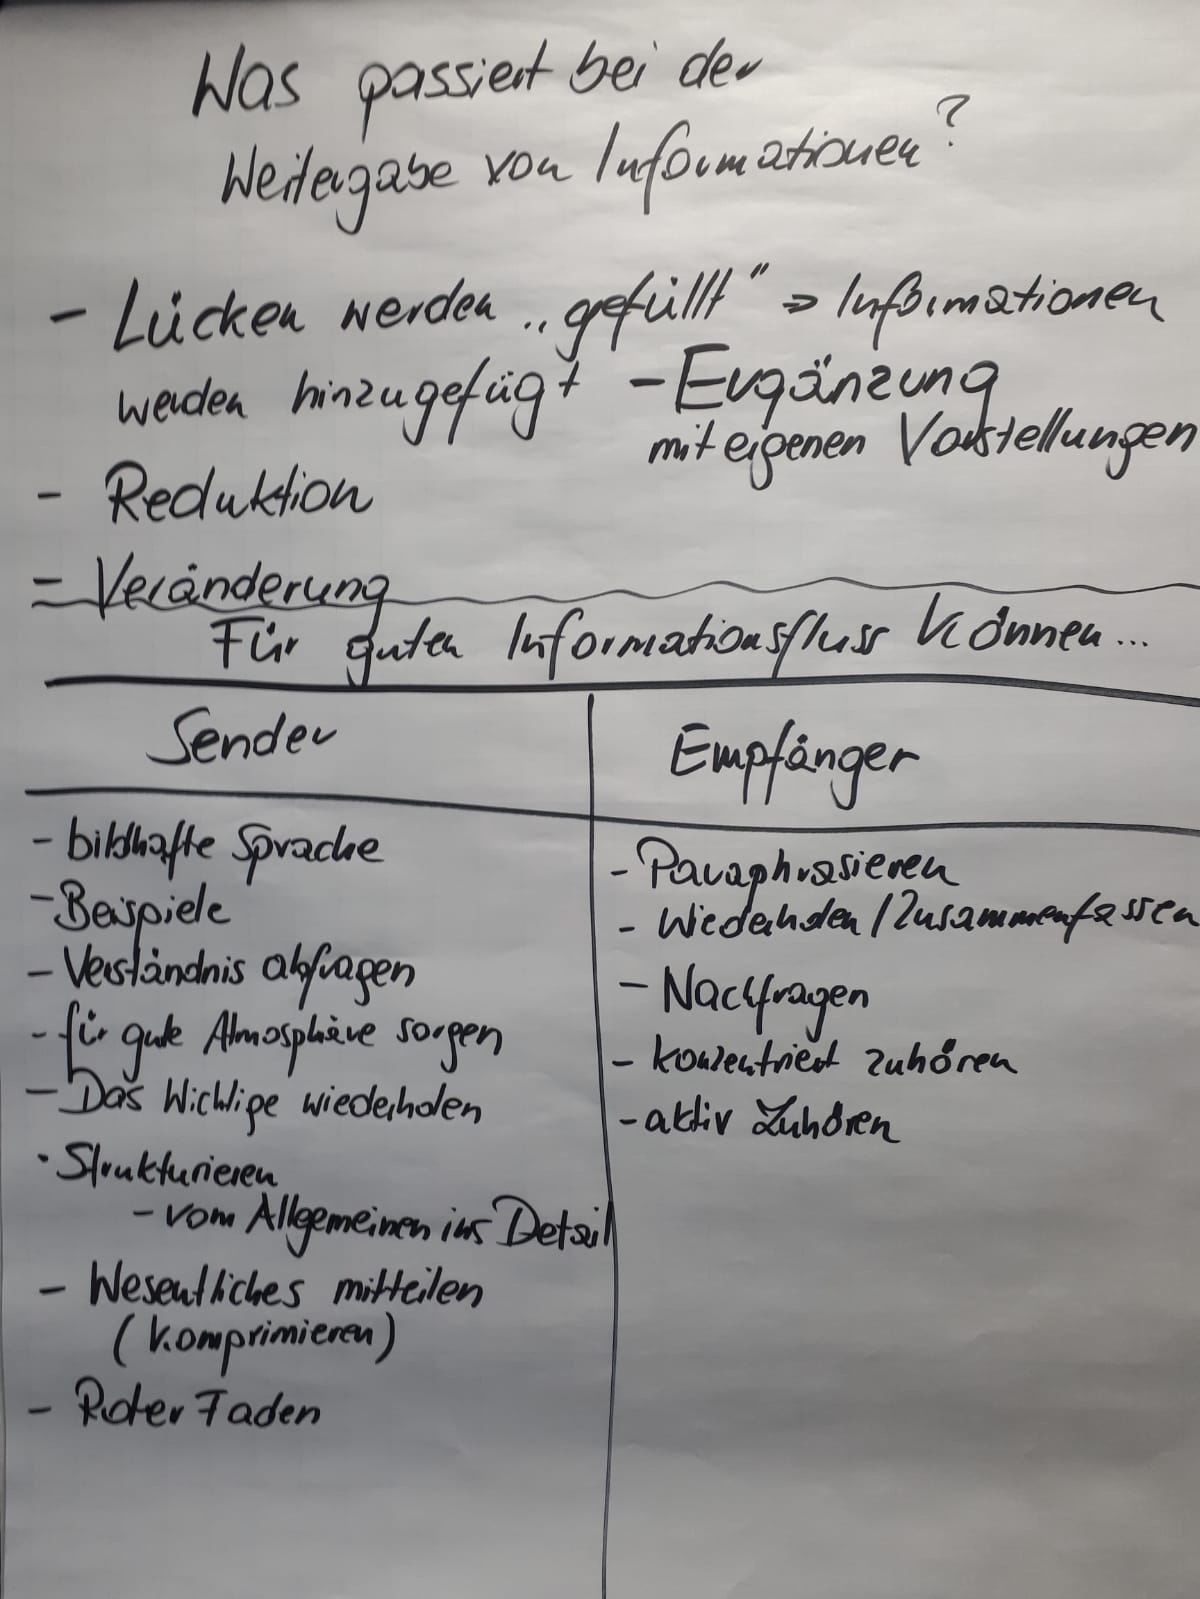 Was passiert bei der
Weitergabe von Informationen?
- Lücken werden „gefüllt" => Informationen
werden hinzugefügt - Ergänzung
mit eigenen Vorstellungen
- Reduktion
- Veränderung
Für guten Informationsfluss können...
Sender
- bildhafte Sprache
- Beispiele
- Verständnis abfragen
- für gute Atmosphäre sorgen
- Das Wichtige wiederholen
· Strukturieren
- vom Allgemeinen ins Detail
- Wesentliches mitteilen
(Komprimieren)
- Roter Faden
Empfänger
- Paraphrasieren
- Wiederholen / Zusammenfassen
- Nachfragen
- konzentriert zuhören
- aktiv Zuhören